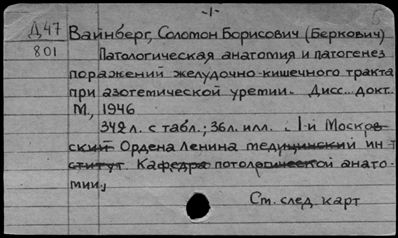 -1-
Д47 Вайнберг, Соломон Борисович (Беркович)
801 Патологическая анатомия и патогенез
поражений желудочно-кишечного тракта
при азотемической уремии. Дисс... докт.
М., 1946
342л. с табл.; 36л. илл. I-й Москов-
ский Ордена Ленина медицинский ин-т
ститут. Кафедра потологической анато-
мии.
См. след карт